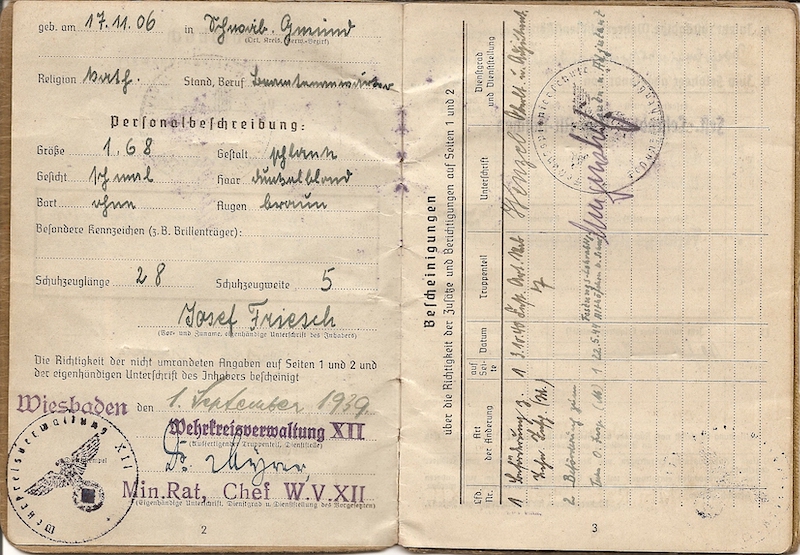 geb. am 17.11.06 in Schwäb. Gmünd
(Ort, Kreis, Verw.-Bezirk)
Religion kath. Stand, Beruf Beamtenanwärter
Personalbeschreibung:
Größe 1.68 Gestalt schlank
Gesicht schmal Haar dunkelblond
Bart ohne Augen braun
Besondere Kennzeichen (z.B. Brillenträger):
Schuhzeuglänge 28 Schuhzeugweite 5
Josef Friesch
(Vor- und Zuname, eigenhändige Unterschrift des Inhabers)
Die Richtigkeit der nicht umrandeten Angaben auf Seiten 1 und 2 und
der eigenhändigen Unterschrift des Inhabers bescheinigt
Wiesbaden den 1. September 1939.
Wehrkreisverwaltung XII
(Ausfertigender Truppenteil, Dienststelle)
Dr. Meyer
Min.Rat, Chef W.V.XII
(Eigenhändige Unterschrift, Dienstgrad u. Dienststellung des Vorgesetzten)
Wehrkreisverwaltung XII
2
Bescheinigungen
über die Richtigkeit der Zusätze und Berichtigungen auf Seiten 1 und 2
Lfd. Nr.
Art der Änderung
auf Seite
Datum
Truppenteil
Unterschrift
Dienstgrad und Dienststellung
1 Beförderung z. 1 3.10.40 Wenzel
2 Beförderung zum 1 22.5.44
3